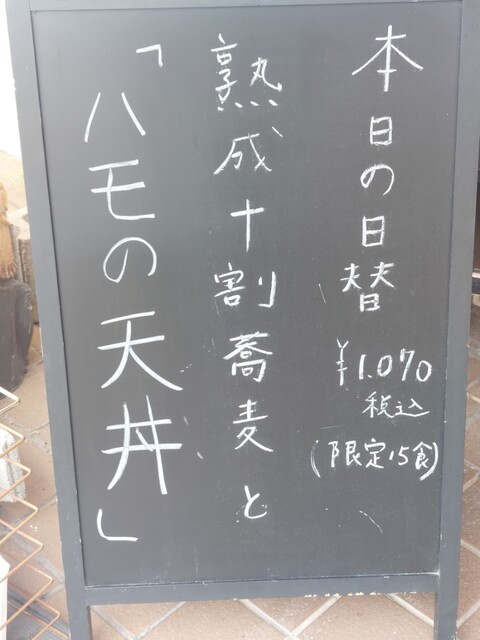 本日の日替
¥1.070
税込
(限定15食)
熟成十割蕎麦と
「ハモの天丼」